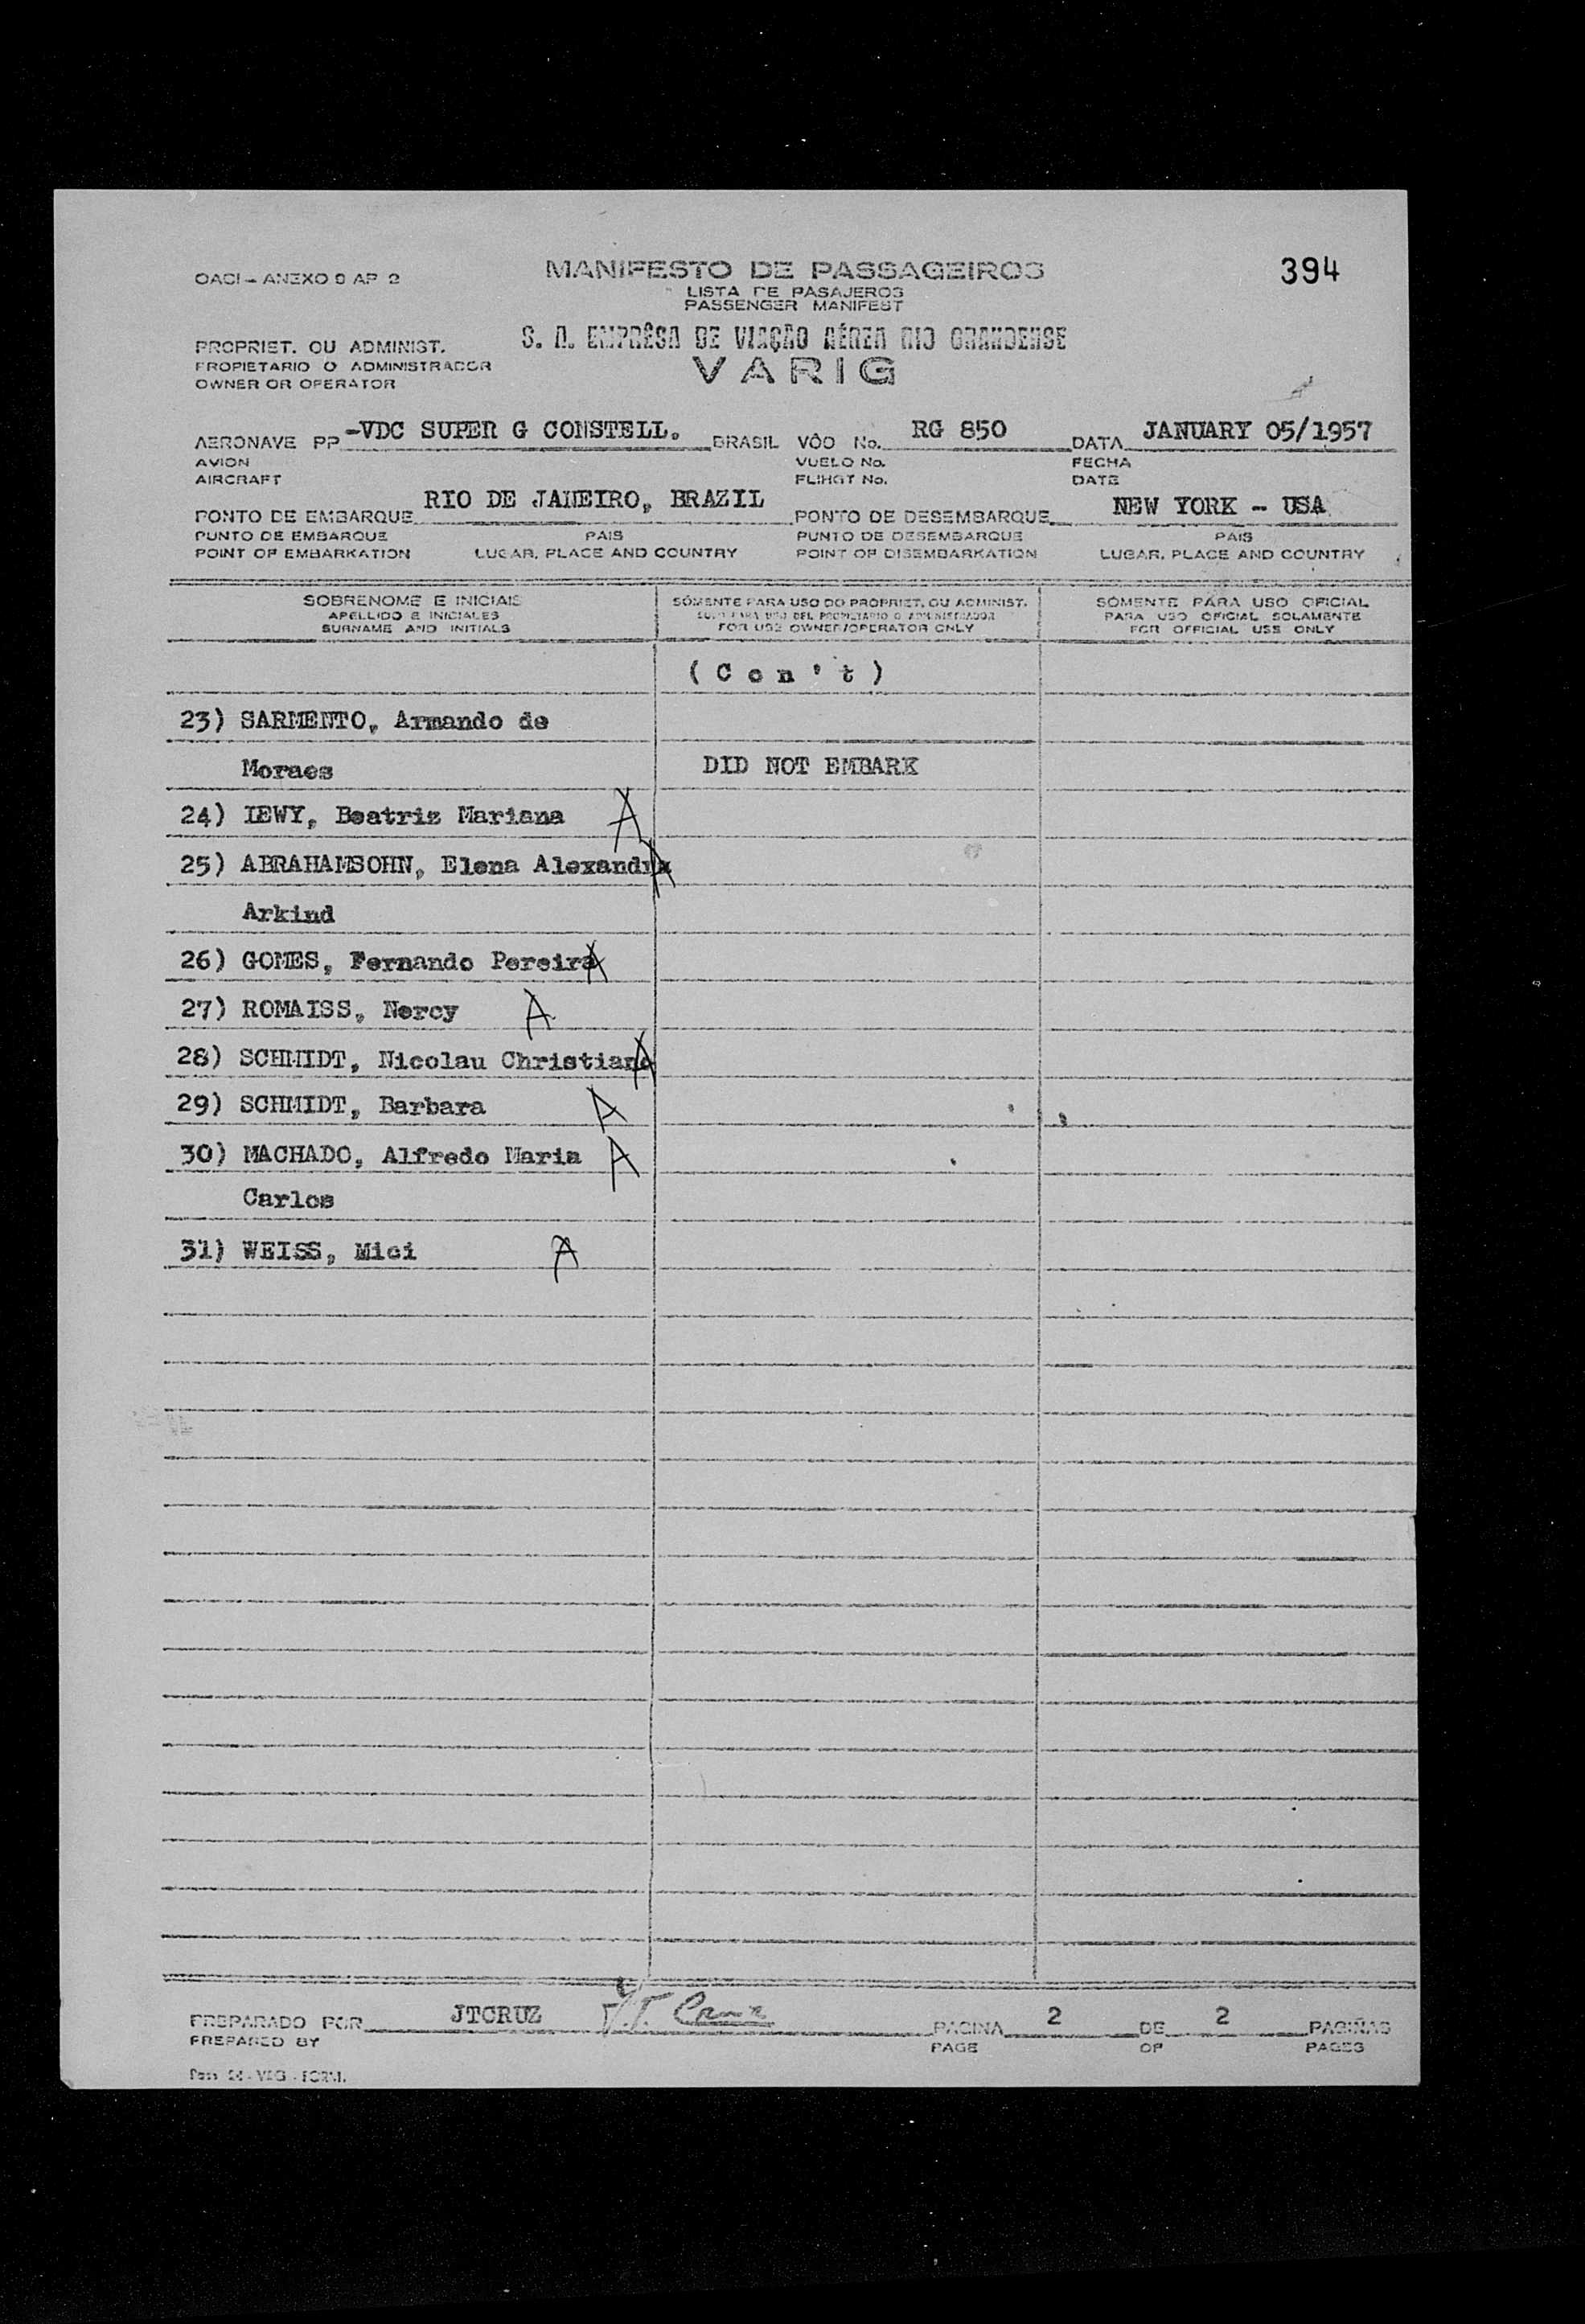 OACI - ANEXO 9 AP 2
MANIFESTO DE PASSAGEIROS
394
LISTA DE PASAJEROS
PASSENGER MANIFEST
S. A. EMPRÊSA DE VIAÇÃO AÉREA RIO GRANDENSE
PROPRIET. OU ADMINIST.
PROPIETARIO O ADMINISTRADOR
VARIG
OWNER OR OPERATOR
AERONAVE PP -VDC SUPER G CONSTELL. BRASIL VÔO No. RG 850 DATA JANUARY 05/1957
AVION VUELO No. FECHA
AIRCRAFT FLIHGT No. DATE
PONTO DE EMBARQUE RIO DE JANEIRO, BRAZIL PONTO DE DESEMBARQUE NEW YORK - USA
PUNTO DE EMBARQUE PAIS PUNTO DE DESEMBARQUE PAIS
POINT OF EMBARKATION LUGAR, PLACE AND COUNTRY POINT OF DISEMBARKATION LUGAR, PLACE AND COUNTRY
SOBRENOME E INICIAIS SÓMENTE PARA USO DO PROPRIET. OU ADMINIST. SÓMENTE PARA USO OFICIAL
APELLIDO E INICIALES PARA USO DEL PROPIETARIO O ADMINISTRADOR PARA USO OFICIAL SOLAMENTE
SURNAME AND INITIALS FOR USE OWNER/OPERATOR ONLY FOR OFFICIAL USE ONLY
( C o n ' t )
23) SARMENTO, Armando de
Moraes DID NOT EMBARK
24) LEWY, Beatriz Mariana A
25) ABRAHAMSOHN, Elena Alexandra A
Arkind
26) GOMES, Fernando Pereira A
27) ROMAISS, Nercy A
28) SCHMIDT, Nicolau Christiano A
29) SCHMIDT, Barbara A
30) MACHADO, Alfredo Maria A
Carlos
31) WEISS, Mici A
PREPARADO POR JTCRUZ J.T. Cruz PAGINA 2 DE 2 PAGIÑAS
PREPARED BY PAGE OF PAGES